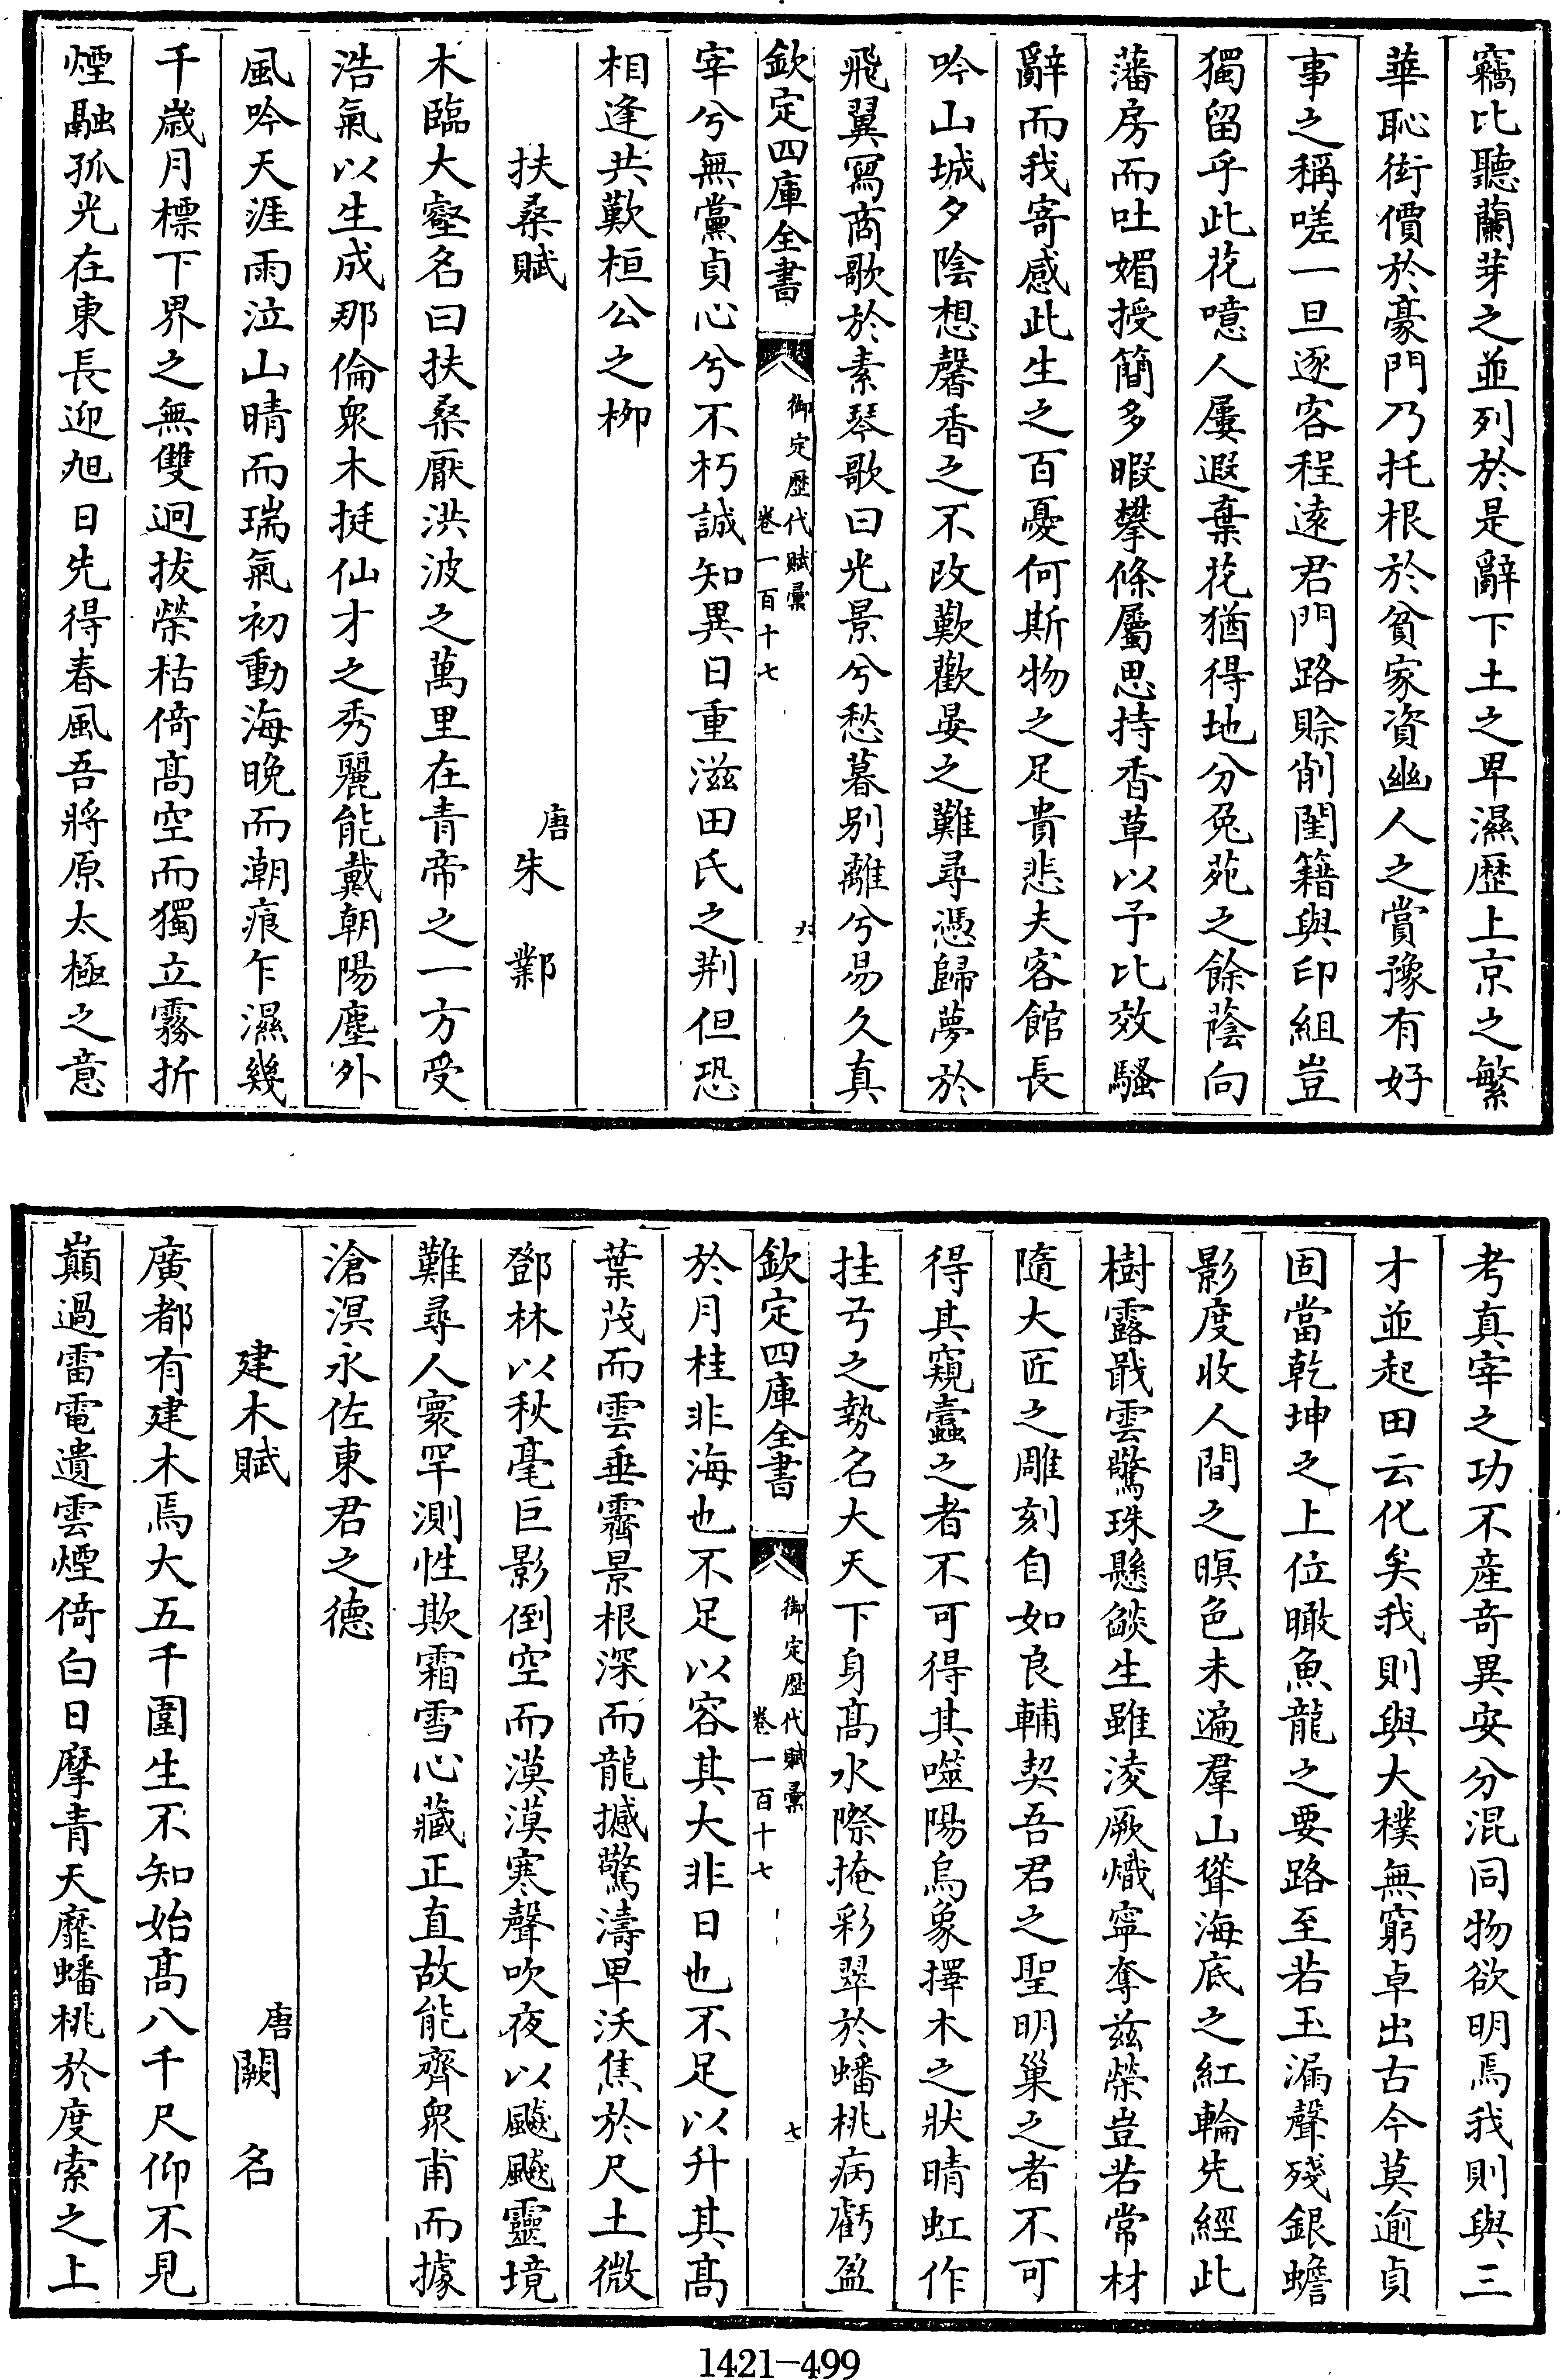 竊比聽蘭芽之並列於是辭下土之卑濕歴上京之繁
華恥衒價於豪門乃托根於貧家資幽人之賞豫有好
事之稱嗟一旦逐客程逺君門路賒削閨籍與印組豈
獨留乎此花噫人屢遐棄花猶得地分兔苑之餘蔭向
藩房而吐媚授簡多暇攀條屬思持香草以予比效騷
辭而我寄感此生之百憂何斯物之足貴悲夫客館長
吟山城夕陰想馨香之不改歎歡晏之難尋憑歸夢於
飛翼寫商歌於素琴歌曰光景兮愁暮别離兮易久真
欽定四庫全書
御定歴代賦彙
卷一百十七
六
宰兮無黨貞心兮不朽誠知異日重滋田氏之荆但恐
相逢共歎桓公之栁
扶桑賦
唐朱鄴
木臨大壑名曰扶桑厭洪波之萬里在青帝之一方受
浩氣以生成那倫衆木挺仙才之秀麗能戴朝陽塵外
風吟天涯雨泣山晴而瑞氣初動海晚而潮痕乍濕幾
千嵗月標下界之無雙迥拔榮枯倚髙空而獨立霧折
煙融孤光在東長迎旭日先得春風吾將原太極之意
考真宰之功不産竒異安分混同物欲明焉我則與三
才並起田云化矣我則與大樸無窮卓出古今莫逾貞
固當乾坤之上位瞰魚龍之要路至若玉漏聲殘銀蟾
影度收人間之暝色未遍羣山聳海底之紅輪先經此
樹露戢雲驚珠懸燄生雖淩厥熾寧奪兹榮豈若常材
隨大匠之雕刻自如良輔契吾君之聖明巢之者不可
得其窺蠧之者不可得其噬陽烏象擇木之狀晴虹作
挂弓之勢名大天下身髙水際掩彩翠於蟠桃病虧盈
欽定四庫全書
御定歴代賦彙
卷一百十七
七
於月桂非海也不足以容其大非日也不足以升其髙
葉茂而雲垂霽景根深而龍撼驚濤卑沃焦於尺土微
鄧林以秋毫巨影倒空而漠漠寒聲吹夜以飇飇靈境
難尋人寰罕測性欺霜雪心藏正直故能齊衆甫而據
滄溟永佐東君之德
建木賦
唐闕名
廣都有建木焉大五千圍生不知始髙八千尺仰不見
巔過雷電遺雲煙倚白日摩青天靡蟠桃於度索之上
1421-499